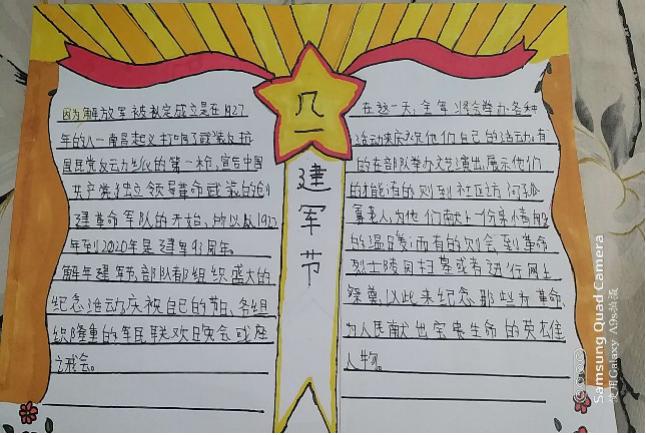 八一
建军节
因为解放军被拟定成立是在1927
年的八一南昌起义打响了武装反抗
国民党反动力的第一枪,宣告中国
共产党独立领导革命武装的创
建革命军队的开始,所以从1927
年到2020年是建军93周年。
解年建军节部队都组织盛大的
纪念活动庆祝自己的节日、各组
织隆重的军民联欢晚会或座
谈会。
在这一天,全军将会举办各种
活动来庆祝他们自己的活动,有
的在部队举办文艺演出,展示他们
的才能有的则到社区访问孤
寡老人,为他们献上一份亲情般
的温暖;而有的则会到革命
烈士陵园扫墓或者进行网上
祭奠,以此来纪念那些为革命,
为人民献出宝贵生命的英雄
人物。
Samsung Quad Camera
使用Galaxy A9s拍摄